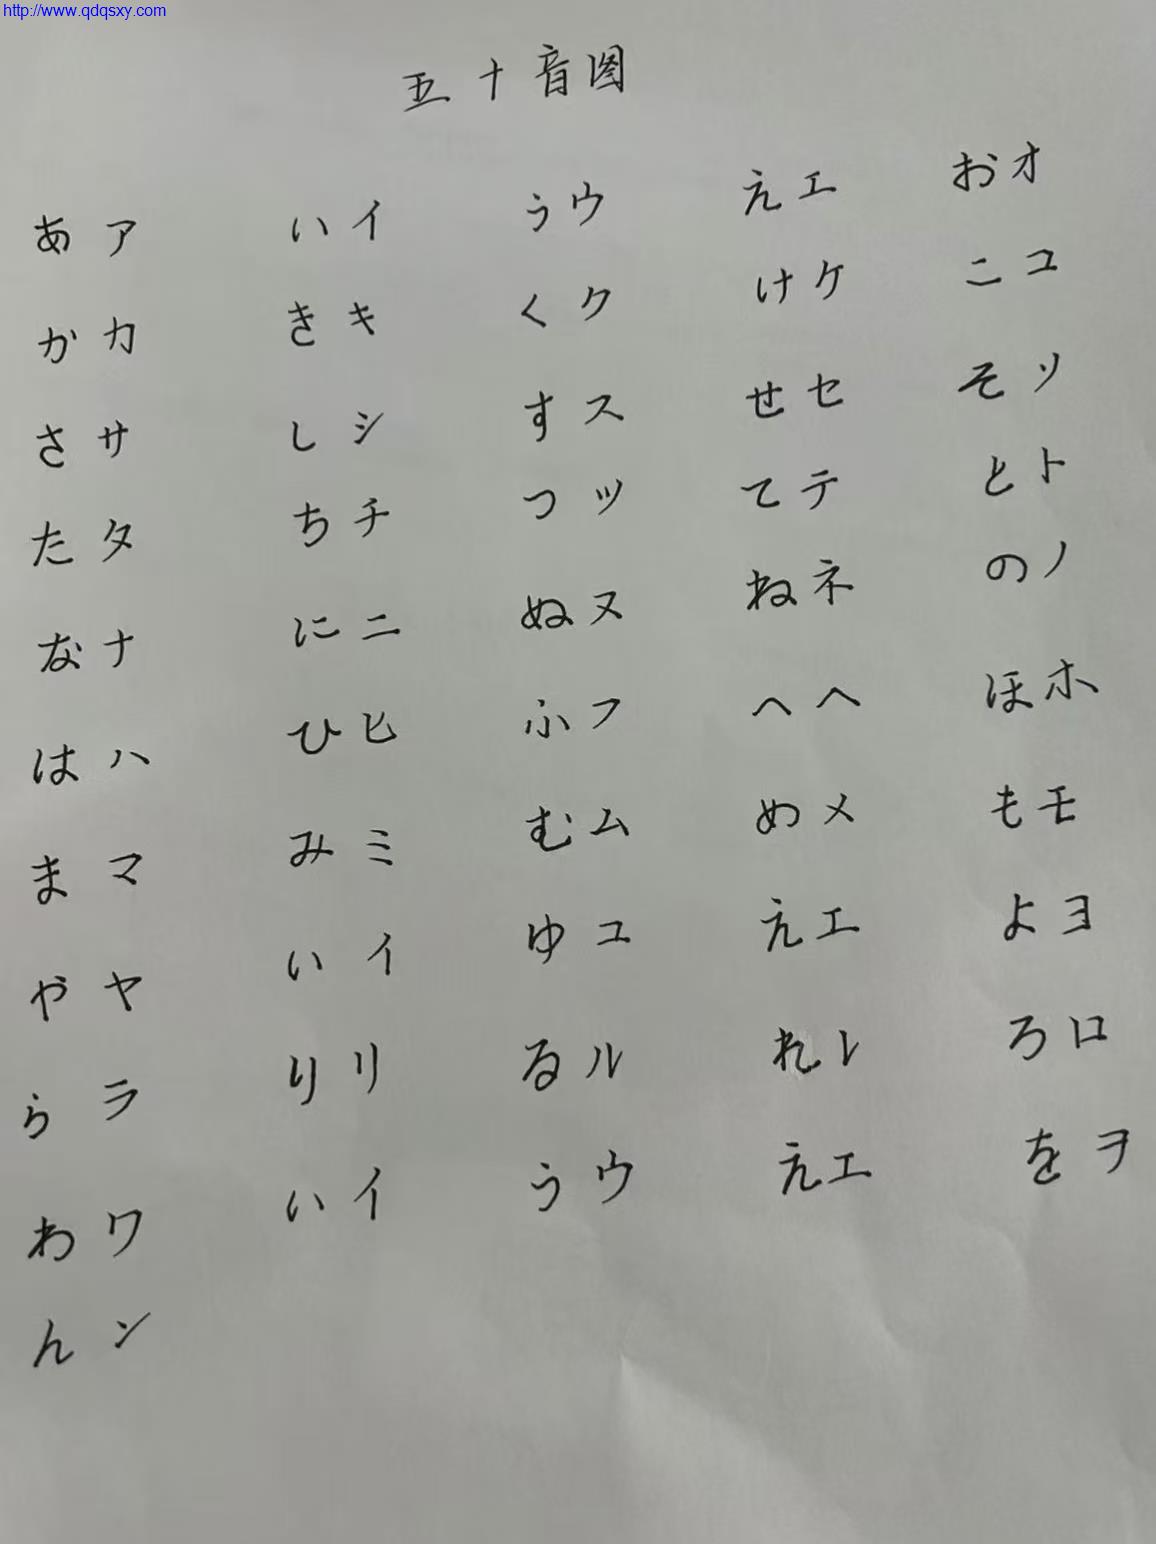 http://www.qdqsxy.com
五十音图
あ ア い イ う ウ え エ お オ
か カ き キ く ク け ケ こ コ
さ サ し シ す ス せ セ そ ソ
た タ ち チ つ ツ て テ と ト
な ナ に ニ ぬ ヌ ね ネ の ノ
は ハ ひ ヒ ふ フ へ ヘ ほ ホ
ま マ み ミ む ム め メ も モ
や ヤ い イ ゆ ユ え エ よ ヨ
ら ラ り リ る ル れ レ ろ ロ
わ ワ い イ う ウ え エ を ヲ
ん ン